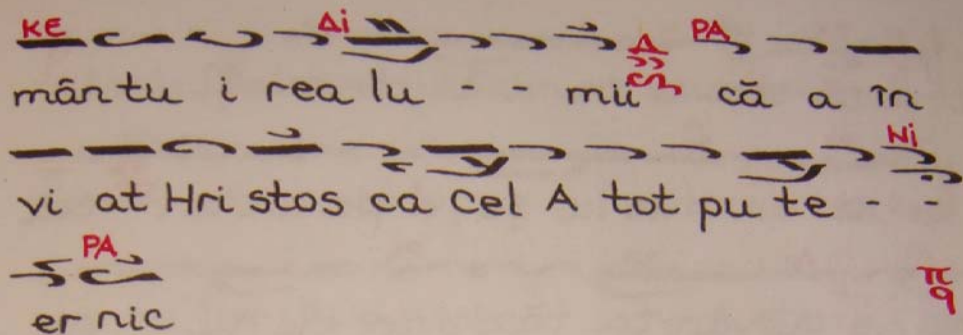 KE Δi Δ PA
mântu i rea lu - - mii că a în
Ni
vi at Hri stos ca Cel A tot pu te - -
PA π q
er nic